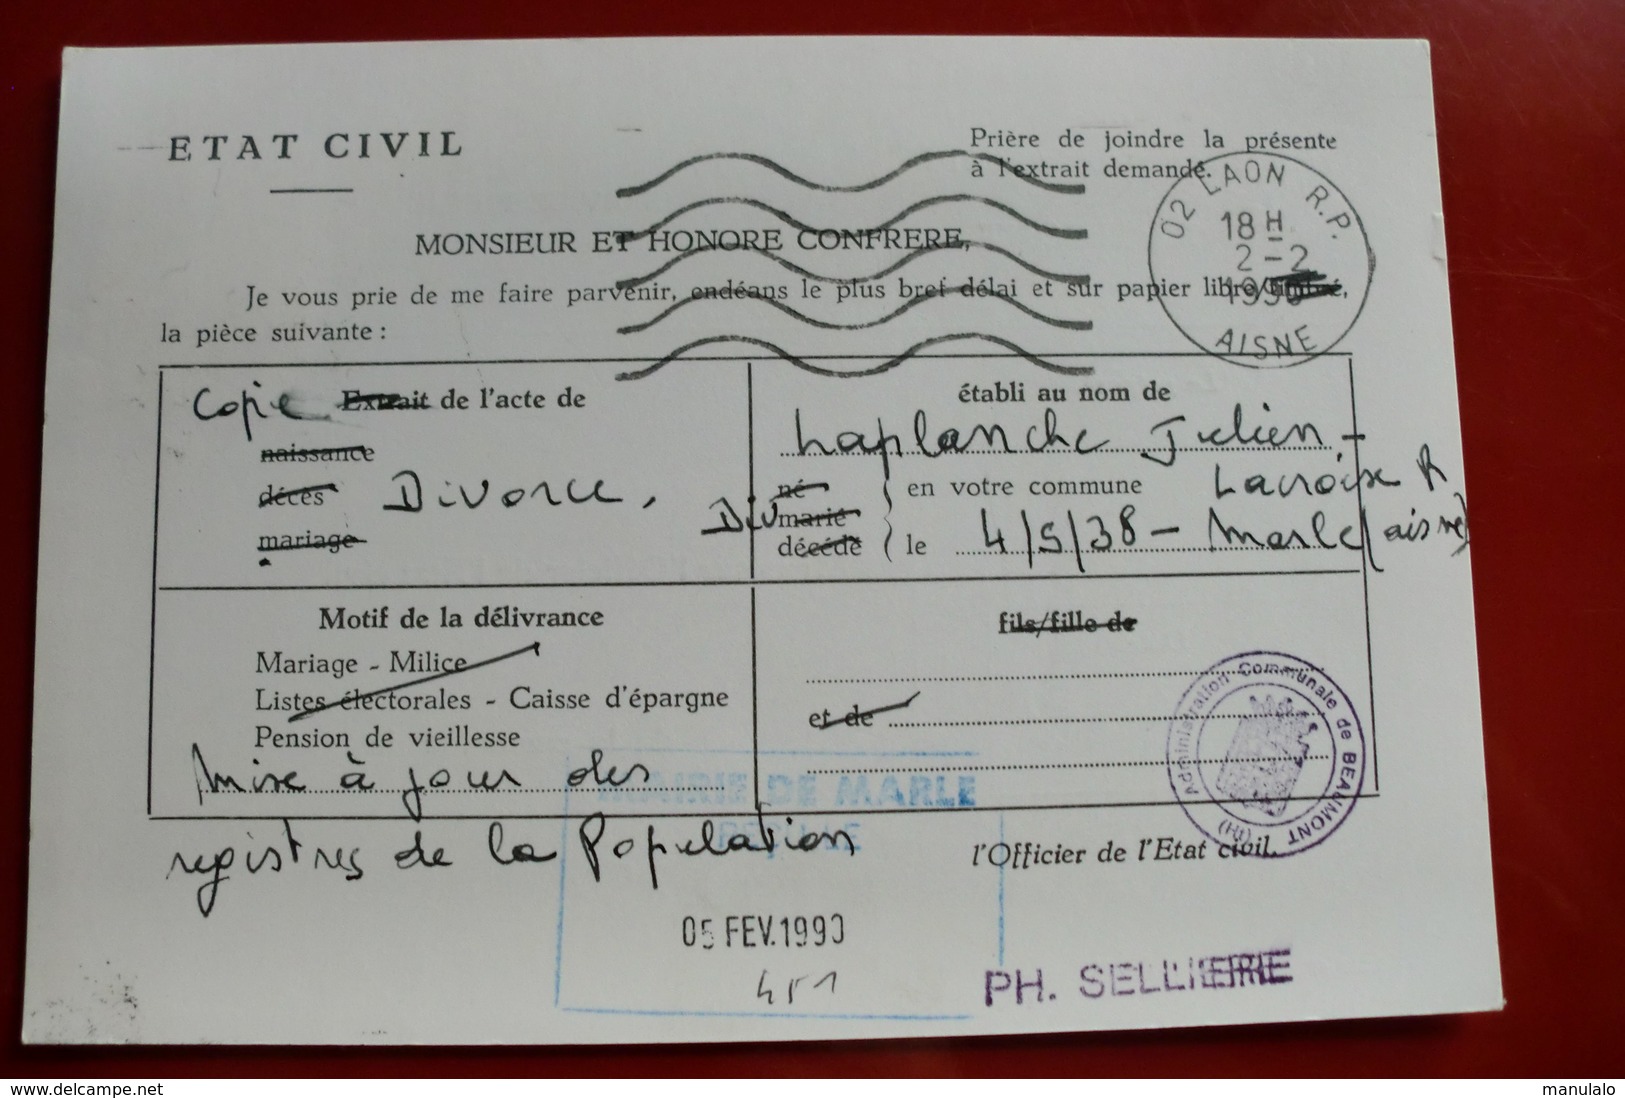 ETAT CIVIL
Prière de joindre la présente
à l'extrait demandé.
02 LAON R.P.
18 H
2-2
1990
AISNE
MONSIEUR ET HONORE CONFRERE,
Je vous prie de me faire parvenir, endéans le plus bref délai et sur papier libre/timbré,
la pièce suivante :
Copie Extrait de l'acte de
naissance
décès Divorce.
mariage
établi au nom de
Laplanche Julien -
né en votre commune Lacroix R
Div marié
décédé le 4/5/38 - Marle (aisne)
Motif de la délivrance
Mariage - Milice
Listes électorales - Caisse d'épargne
Pension de vieillesse
Mise à jour des
registres de la Population
fils/fille de
et de
Administration Communale de BEAUMONT
(Ht)
MAIRIE DE MARLE
REÇU LE
05 FEV. 1990
451
l'Officier de l'Etat civil.
PH. SELLIER
www.delcampe.net
manulalo